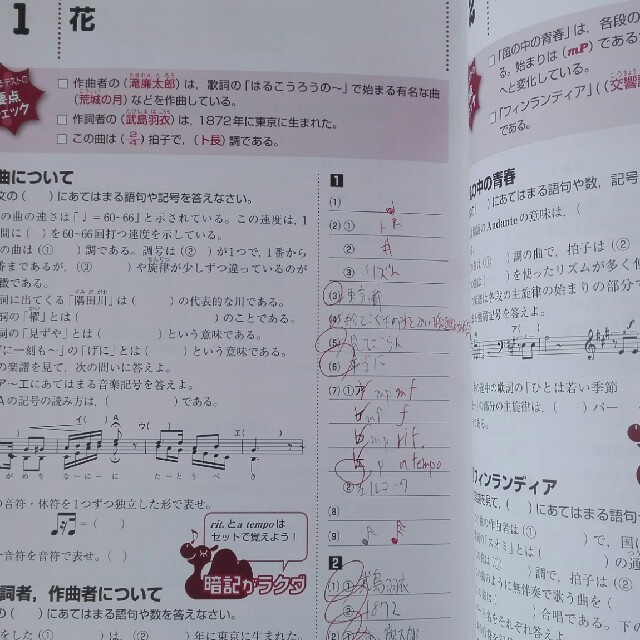 1 花
□ 作曲者の（滝廉太郎）は，歌詞の「はるこうろうの〜」で始まる有名な曲
（荒城の月）などを作曲している。
□ 作詞者の（武島羽衣）は，1872年に東京に生まれた。
□ この曲は（2/4）拍子で，（ト長）調である。
曲について
文の（　）にあてはまる語句や記号を答えなさい。
の曲の速さは「♩＝60-66」と示されている。この速度は，1
間に（　）を60-66回打つ速度を示している。
の曲は（①　）調である。調号は（②　）が1つで，1番から
番まであるが，（③　）や旋律が少しずつ違っているのが
徴である。
詞に出てくる「隅田川」は（　）の代表的な川である。
詞の「櫂」とは（　）のことである。
詞の「見ずや」とは（　）という意味である。
「げに一刻も〜」の「げに」とは（　）という意味である。
の楽譜を見て，次の問いに答えよ。
ア〜エにあてはまる音楽記号を答えよ。
Aの記号の読み方は，（　）である。
イ（　）
A
ウ（　）
エ（　）
がめを なーにーに たーとうべき
の音符・休符を1つずつ独立した形で表せ。
＝（　）
音符を音符で表せ。（　）
rit.とa tempoは
セットで覚えよう！
暗記がラクダ
詞者，作曲者について
の（　）にあてはまる語句や数を答えなさい。
をした（①　）は，（②　）年に東京に生まれた。
1
(1)
(2) ① ト長
② #
③ リズム
(3) 東京都
(5) 見てごらん
(6) 本当に
(7) ① ア mp mf
イ mf f
ウ mp rit.
エ p a tempo
② フェルマータ
(8)
(9)
2
(1) ① 武島羽衣
② 1872
□「風の中の青春」は，各段の
る。始まりは（mP）である
へと変化している。
□「フィンランディア」（（交響
である。
風の中の青春
の（　）にあてはまる語句や数，記号
Andanteの意味は，（
は（①　）調の曲で，拍子は（②
は（　）を使ったリズムが多く使
旋律の始まりの部分で
を答えよ。
の歌詞の「ひとは若い季節
の部分の主旋律は，（　）パー
フィンランディア
を見て，（　）にあてはまる語句
の作曲者は（①　）で，国に
は（　）の通
は（①　）調で，拍子は（②
のように無伴奏で歌う曲を（
（　）合唱である。下の
をそれぞれ答えよ